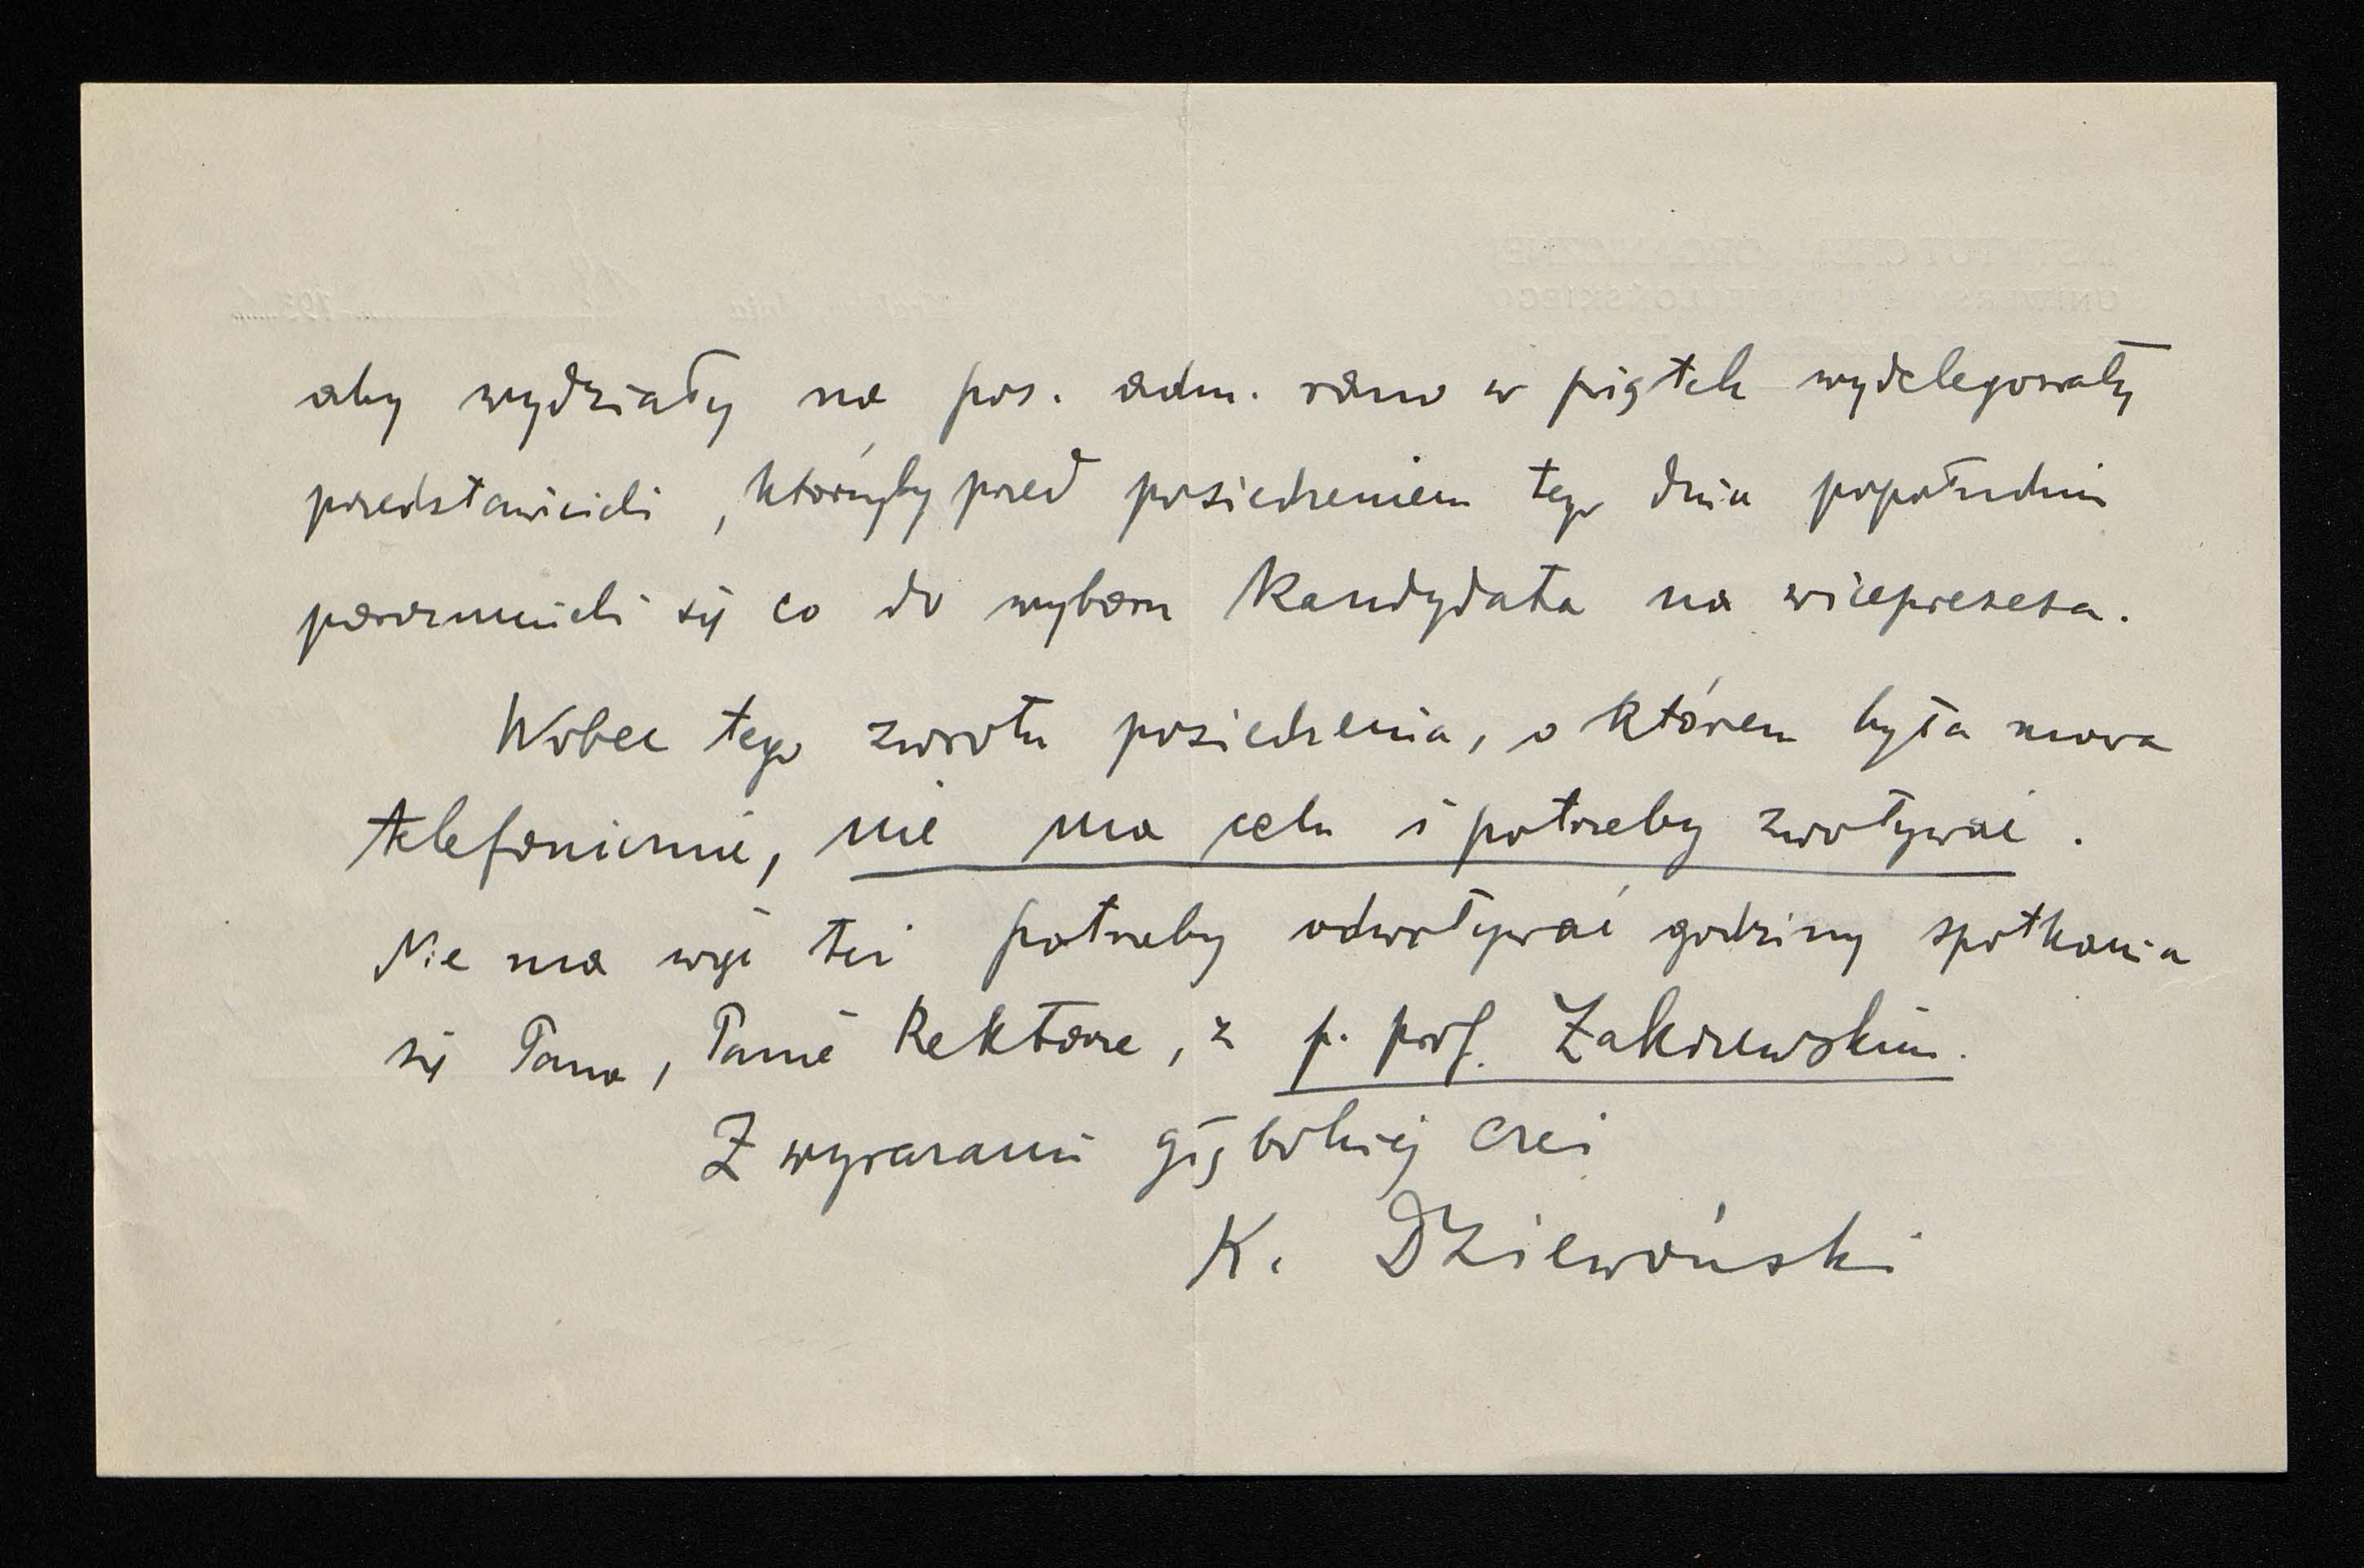 aby wydziały na pos. adm. rano w piątek wydelegowały
przedstawicieli, którzyby przed posiedzeniem tego dnia popołudniu
porozumieli się co do wyboru kandydata na wiceprezesa.
Wobec tego zwrotu posiedzenia, o którem była mowa
telefonicznie, nie ma celu i potrzeby zwoływać.
Nie ma więc też potrzeby odwoływać godziny spotkania
się Pana, Panie Rektorze, z p. prof. Zakrzewskim.
Z wyrazami głębokiej czci
K. Dziewoński